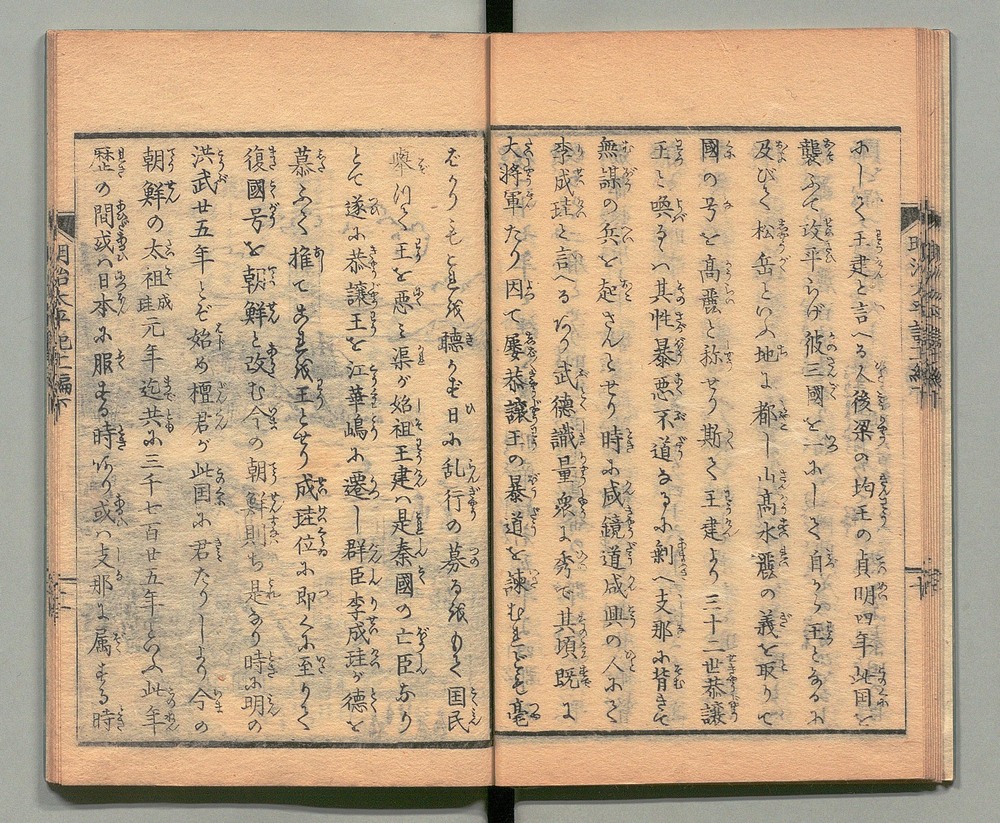 かしく王建と言へる人後梁の均王の貞明四年此国を
襲ふて攻平らげ彼三國を一にして自から王となるに
及びて松岳といふ地に都し山高水麗の義を取りて
國の号を高麗と称せり斯て王建より三十二世恭讓
王と喚るハ其性暴悪不道なるに剰へ支那に背きて
無謀の兵を起さんとせり時に咸鏡道咸興の人にて
李成珪と言へるあり武德識量衆に秀で其頃既に
大將軍たり因て屡恭讓王の暴道を諫むれども毫
ばかりもこれを聴かず日に乱行の募るをもて国民
擧りて王を悪ミ渠が始祖王建ハ是秦國の亡臣なり
とて遂に恭讓王を江華嶋に遷し群臣李成珪が德を
慕ふて推てこれを王とせり成珪位に即くに至りて
復國号を朝鮮と改む今の朝鮮則ち是なり時に明の
洪武廿五年とぞ始め檀君が此国に君たりしより今の
朝鮮の太祖成珪元年迄共に三千七百廿五年といふ此年
歴の間或ハ日本に服する時あり或ハ支那に属する時
明治太平記十一編下